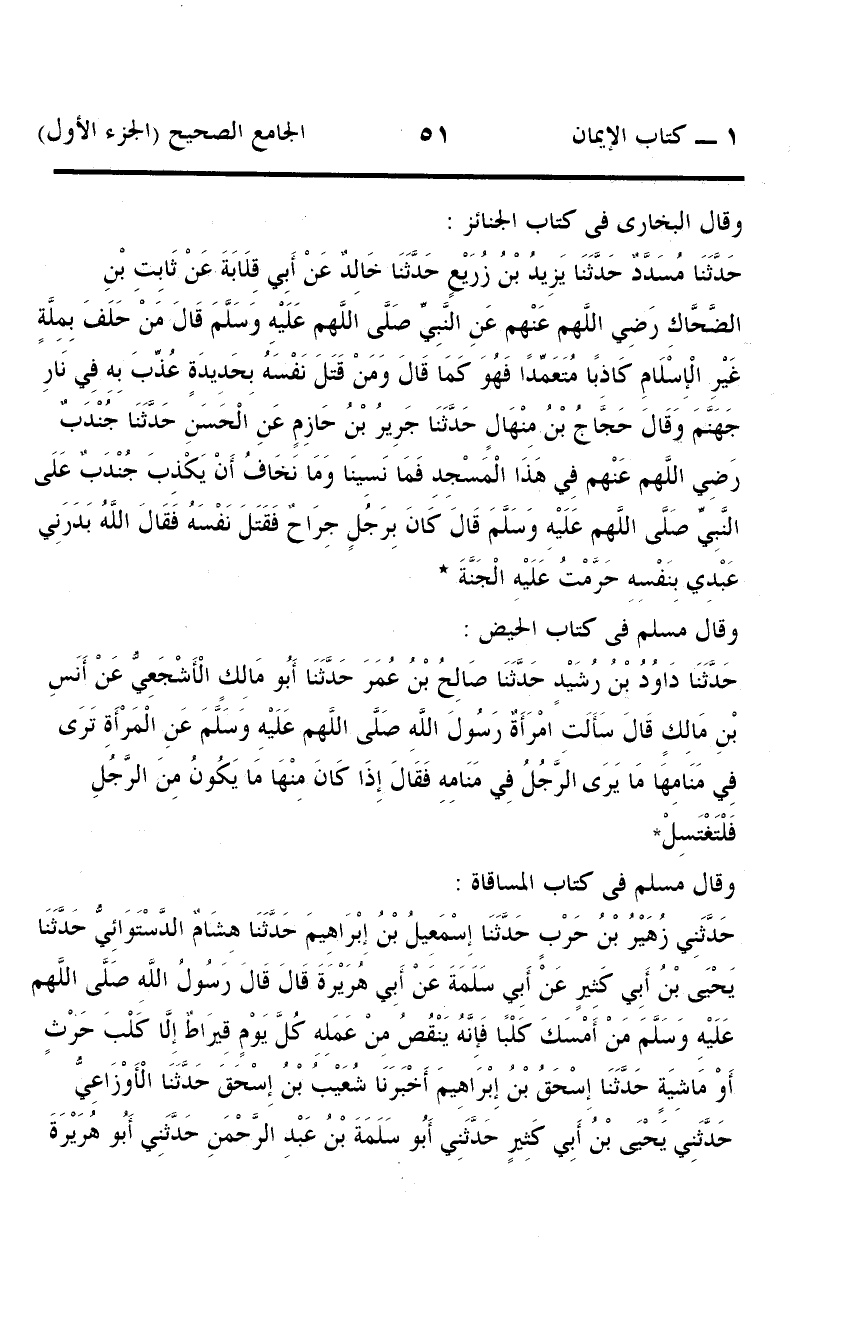 ١ ــ كتاب الإيمان ٥١ الجامع الصحيح (الجزء الأول)
وقال البخارى فى كتاب الجنائز :
حَدَّثَنَا مُسَدَّدٌ حَدَّثَنَا يَزِيدُ بْنُ زُرَيْعٍ حَدَّثَنَا خَالِدٌ عَنْ أَبِي قِلَابَةَ عَنْ ثَابِتِ بْنِ
الضَّحَّاكِ رَضِي اللهم عَنْهم عَنِ النَّبِيِّ صَلَّى اللهم عَلَيْهِ وَسَلَّمَ قَالَ مَنْ حَلَفَ بِمِلَّةٍ
غَيْرِ الْإِسْلَامِ كَاذِبًا مُتَعَمِّدًا فَهُوَ كَمَا قَالَ وَمَنْ قَتَلَ نَفْسَهُ بِحَدِيدَةٍ عُذِّبَ بِهِ فِي نَارِ
جَهَنَّمَ وَقَالَ حَجَّاجُ بْنُ مِنْهَالٍ حَدَّثَنَا جَرِيرُ بْنُ حَازِمٍ عَنِ الْحَسَنِ حَدَّثَنَا جُنْدَبٌ
رَضِي اللهم عَنْهم فِي هَذَا الْمَسْجِدِ فَمَا نَسِينَا وَمَا نَخَافُ أَنْ يَكْذِبَ جُنْدَبٌ عَلَى
النَّبِيِّ صَلَّى اللهم عَلَيْهِ وَسَلَّمَ قَالَ كَانَ بِرَجُلٍ جِرَاحٌ فَقَتَلَ نَفْسَهُ فَقَالَ اللَّهُ بَدَرَنِي
عَبْدِي بِنَفْسِهِ حَرَّمْتُ عَلَيْهِ الْجَنَّةَ *
وقال مسلم فى كتاب الحيض :
حَدَّثَنَا دَاوُدُ بْنُ رُشَيْدٍ حَدَّثَنَا صَالِحُ بْنُ عُمَرَ حَدَّثَنَا أَبُو مَالِكٍ الْأَشْجَعِيُّ عَنْ أَنَسِ
بْنِ مَالِكٍ قَالَ سَأَلَتِ امْرَأَةٌ رَسُولَ اللَّهِ صَلَّى اللهم عَلَيْهِ وَسَلَّمَ عَنِ الْمَرْأَةِ تَرَى
فِي مَنَامِهَا مَا يَرَى الرَّجُلُ فِي مَنَامِهِ فَقَالَ إِذَا كَانَ مِنْهَا مَا يَكُونُ مِنَ الرَّجُلِ
فَلْتَغْتَسِلْ*
وقال مسلم فى كتاب المساقاة :
حَدَّثَنِي زُهَيْرُ بْنُ حَرْبٍ حَدَّثَنَا إِسْمَعِيلُ بْنُ إِبْرَاهِيمَ حَدَّثَنَا هِشَامٌ الدَّسْتَوَائِيُّ حَدَّثَنَا
يَحْيَى بْنُ أَبِي كَثِيرٍ عَنْ أَبِي سَلَمَةَ عَنْ أَبِي هُرَيْرَةَ قَالَ قَالَ رَسُولُ اللَّهِ صَلَّى اللهم
عَلَيْهِ وَسَلَّمَ مَنْ أَمْسَكَ كَلْبًا فَإِنَّهُ يَنْقُصُ مِنْ عَمَلِهِ كُلَّ يَوْمٍ قِيرَاطٌ إِلَّا كَلْبَ حَرْثٍ
أَوْ مَاشِيَةٍ حَدَّثَنَا إِسْحَقُ بْنُ إِبْرَاهِيمَ أَخْبَرَنَا شُعَيْبُ بْنُ إِسْحَقَ حَدَّثَنَا الْأَوْزَاعِيُّ
حَدَّثَنِي يَحْيَى بْنُ أَبِي كَثِيرٍ حَدَّثَنِي أَبُو سَلَمَةَ بْنُ عَبْدِ الرَّحْمَنِ حَدَّثَنِي أَبُو هُرَيْرَةَ